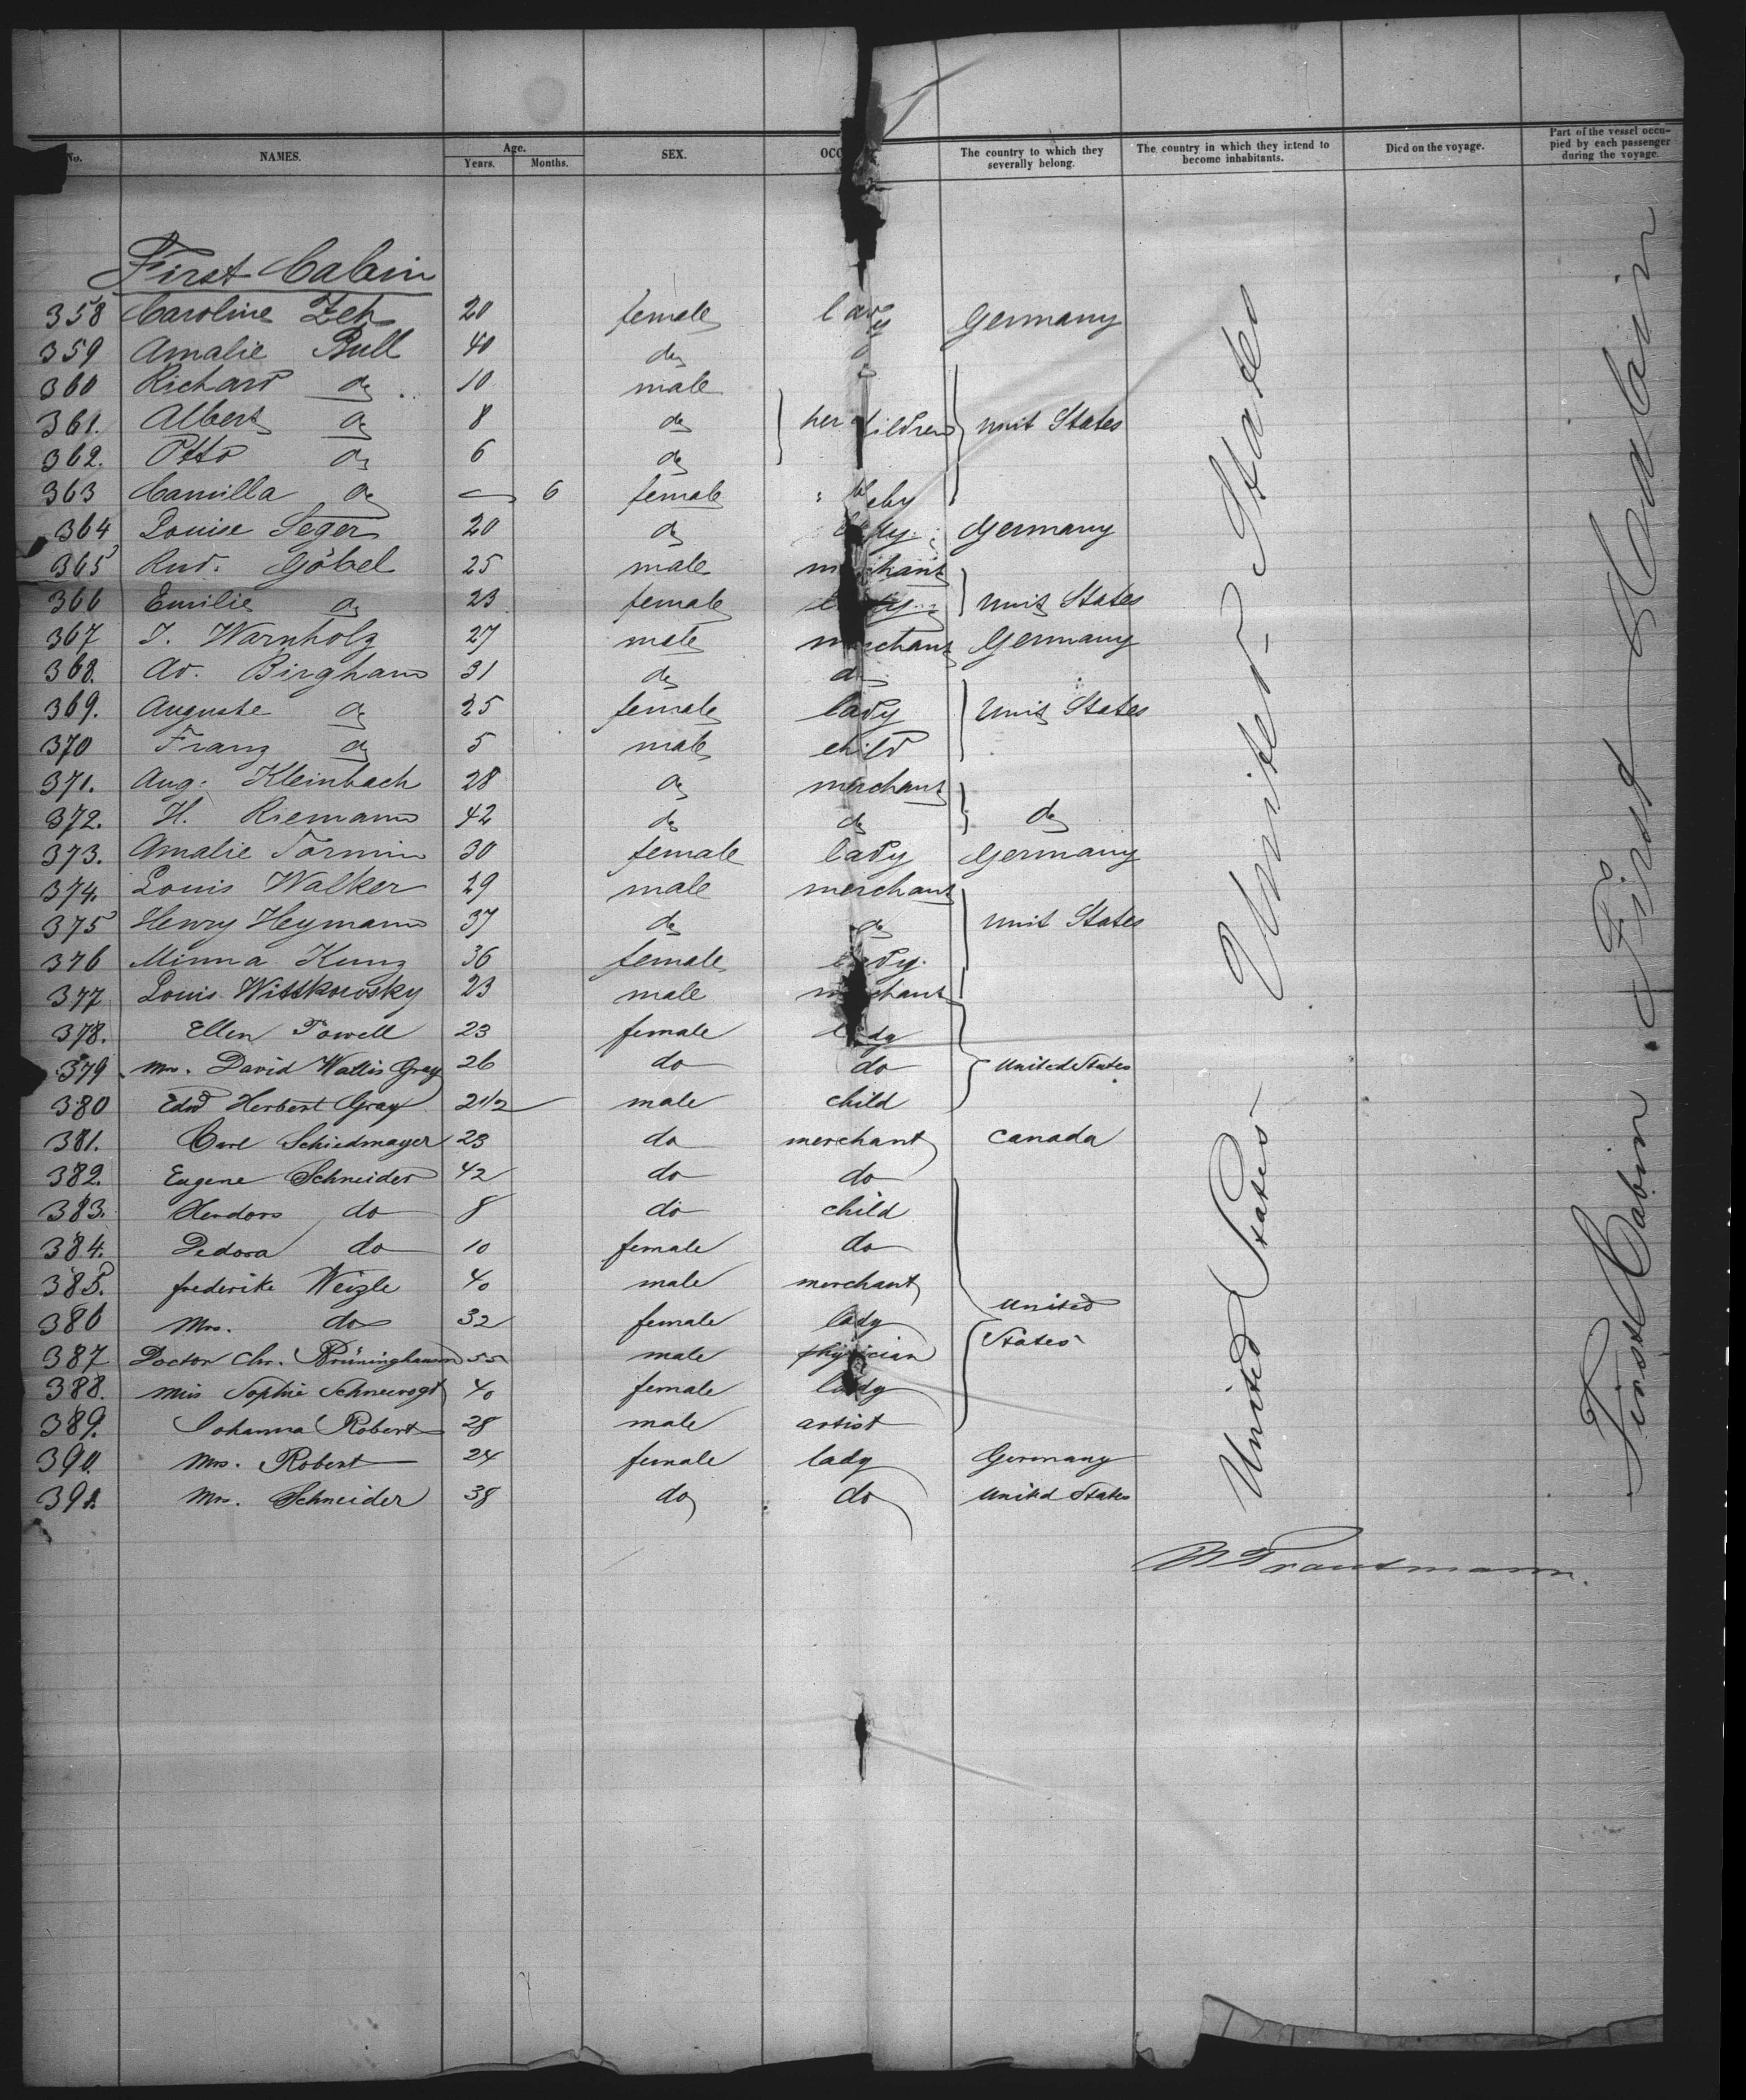 No. NAMES. Age. Years. Months. SEX. The country to which they severally belong. The country in which they intend to become inhabitants. Died on the voyage. Part of the vessel occupied by each passenger during the voyage.
First Cabin
358 Caroline Zeh 20 female lady Germany
359 Amalie Bull 40 do
360 Richard do 10 male
361. Albert do 8 do her children Unit States
362. Otto do 6 do
363 Camilla do — 6 female " baby
364 Louise Seger 20 do lady Germany
365 Rud. Göbel 25 male merchant
366 Emilie do 23 female lady Unit States
367 J. Warnholz 27 male merchant Germany
368. Ad. Birgham 31 do do
369. Auguste do 25 female lady Unit States
370 Franz do 5 male child
371. Aug. Kleinbach 28 do merchant
372. H. Riemann 42 do do do
373. Amalie Tormin 30 female lady Germany
374. Louis Walker 29 male merchant
375 Henry Heymann 37 do do Unit States
376 Minna Kunz 36 female lady
377 Louis Wittkowsky 23 male merchant
378. Ellen Powell 23 female lady
379 Mrs. David Wallis Gray 26 do do United States
380 Edwd Herbert Gray 2 1/2 male child
381. Carl Schiedmayer 23 do merchant Canada
382. Eugene Schneider 42 do do
383. do 8 do child
384. Fedora do 10 female do
385. frederike Weizle 40 male merchant
386 Mrs. do 32 female lady United
387 Doctor Chr. Brüninghausen 55 male physician States
388. Miss Sophie Schneevogt 40 female lady
389. Johanna Robert 28 male artist
390. Mrs. Robert 24 female lady Germany
391. Mrs. Schneider 38 do do United States
United States
United States
First Cabin
First Cabin
Trautmann.